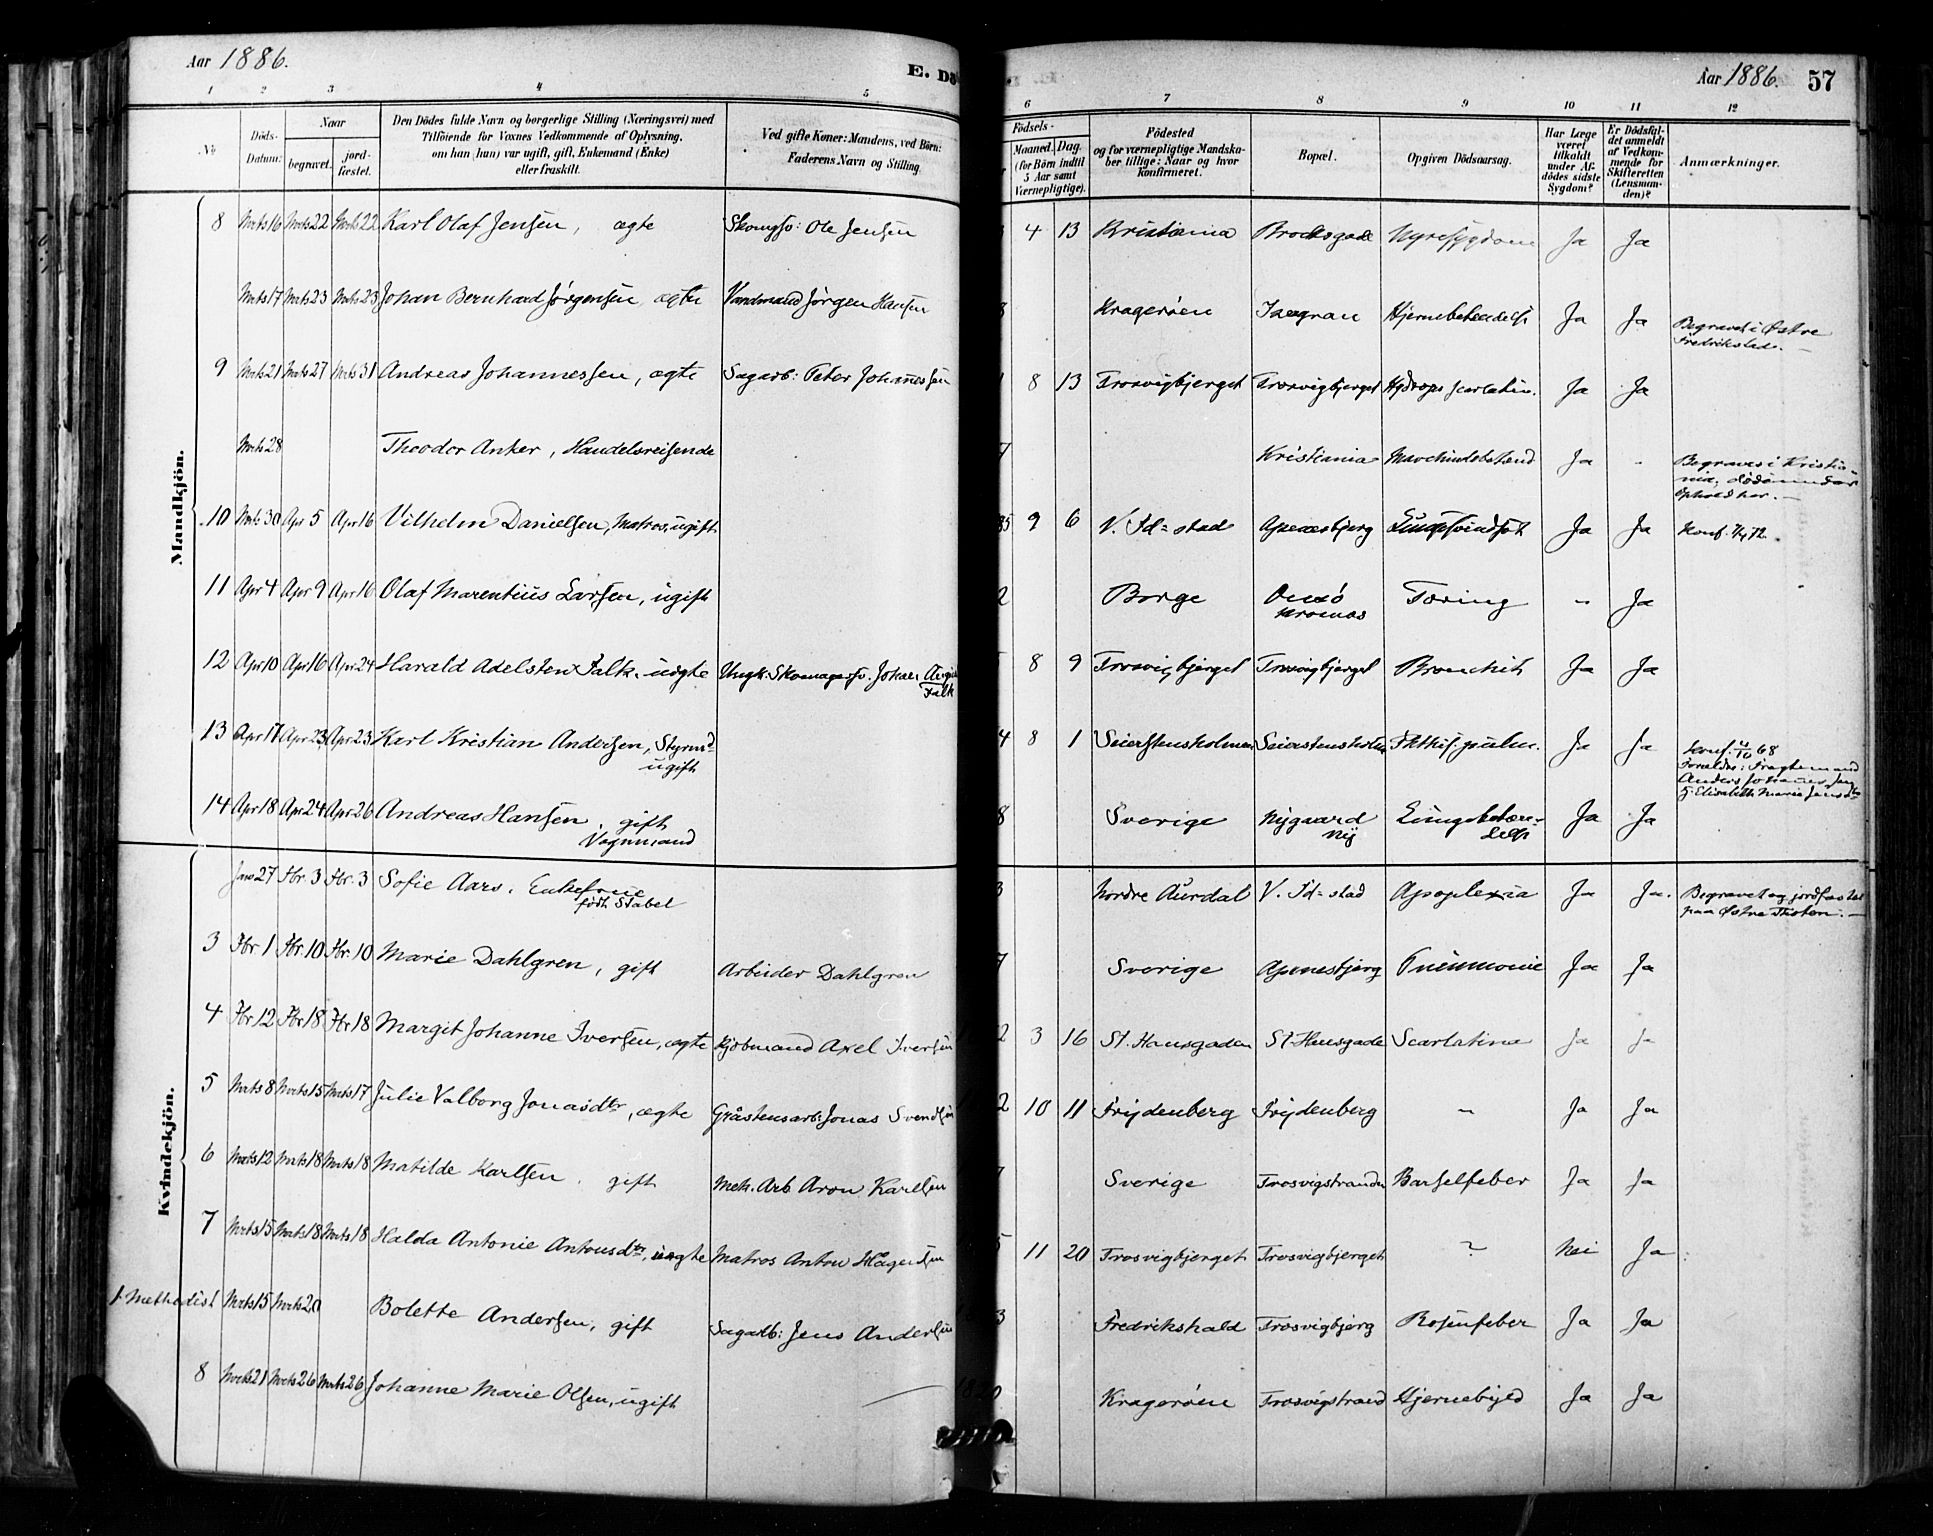 Aar 1886.
E. Dö
1 2 3 4 5
No
Döds-Datum:
Naar
begravet.
jord-fæstet.
Den Dödes fulde Navn og borgerlige Stilling (Næringsvei) med
Tilföiende for Voxnes Vedkommende af Oplysning,
om han (hun) var ugift, gift, Enkemand (Enke)
eller fraskilt.
Ved gifte Koner: Mandens, ved Börn:
Faderens Navn og Stilling.
Mandkjön.
8 Mrts 16 Mrts 22 Mrts 22 Karl Olaf Jensen, ægte Skomgsv: Ole Jensen
Mrts 17 Mrts 23 Mrts 23 Johan Bernhard Jörgensen, ægte Vandmand Jörgen Hansen
9 Mrts 21 Mrts 27 Mrts 31 Andreas Johannessen, ægte Sagarb: Peter Johanessen
Mrts 28 Theodor Anker, Handelsreisende
10 Mrts 30 Apr 5 Apr 16 Vilhelm Danielsen, Matros, ugift
11 Apr 4 Apr 9 Apr 16 Olaf Marentius Larsen, ugift
12 Apr 10 Apr 16 Apr 24 Harald Adelsten Falk, uægte Ungk: Skomagersv. Johan
Falk
13 Apr 17 Apr 23 Apr 23 Karl Kristian Andersen, Styrmd
ugift
14 Apr 18 Apr 24 Apr 26 Andreas Hansen, gift
Vognmand
Kvindekjön.
Jan 27 Fbr. 3 Fbr. 3 Sofie Aars, Enkefrue
födt Stabel
3 Fbr 1 Fbr. 10 Fbr. 10 Marie Dahlgren, gift Arbeider Dahlgren
4 Fbr 12 Fbr 18 Fbr 18 Margit Johanne Iversen, ægte Kjöbmand Axel Iversen
5 Mrts 8 Mrts 15 Mrts 17 Julie Valborg Jonasdtr, ægte Gråstensarb: Jonas Svendsen
6 Mrts 12 Mrts 18 Mrts 18 Matilde Karlsen, gift Mek. Arb Aron Karlsen
7 Mrts 15 Mrts 18 Mrts 18 Halda Antonie Antonsdtr, uægte Matros Anton Hågensen
1 Methodist Mrts 15 Mrts 20 Bolette Andersen, gift Sagarb: Jens Andersen
8 Mrts 21 Mrts 26 Mrts 26 Johanne Marie Olsen, ugift
Aar 1886. 57
6 7 8 9 10 11 12
Födsels-
Maaned. Dag.
(for Börn indtil
5 Aar samt
Værnepligtige).
Födested
og for værnepligtige Mandska-
ber tillige: Naar og hvor
Konfirmeret.
Bopæl.
Opgiven Dödsaarsag.
Har Læge
været
tilkaldt
under Af-
dödes sidste
Sygdom?
Er Dödsfal-
det anmeldt
af Vedkom-
mende for
Skifteretten
(Lensman-
den)?
Anmærkninger.
4 13 Kristiania Brochsgade Nyresygdom Ja Ja
Kragerøen Hjernebetændelse Ja Ja Begravet i Østre
Fredrikstad. –
8 13 Trosvigbjerget Trosvigbjerget Hydrops scarlatin. Ja Ja
Kristiania Ja - Begraves i Kristia-
nia, döde under
Ophold her. –
9 6 V. Fd=stad Apenesbjerg Ja Ja Konf. 7/4 72.
Borge Onsö Tæring - Ja
8 9 Trosvigbjerget Trosvigbjerget Bronchit Ja Ja
8 1 Seierstensholmen Seierstensholm Phthis. pulm. Ja Ja Konf. 68
Forældre: Fragtemand
Anders Johannessen
Elisabeth Marie Jensdtr
Sverige Nygaard
Ny Lungebetæn-
delse Ja Ja
Nordre Aurdal V. Fd=stad Apoplexia Ja Ja. Begravet og jordfæstet
paa Østre Fdsten. –
Sverige Apenesbjerg Pneumonie Ja Ja
3 16 St. Hansgaden St. Hansgade Scarlatina Ja Ja
10 11 Frydenberg Frydenberg - Ja Ja
Sverige Trosvigstranden Barselfeber Ja Ja
11 20 Trosvigbjerget Trosvigbjerget ? Nei Ja
Fredrikshald Trosvigbjerg Rosenfeber Ja Ja
Kragerøen Trosvigstrand Hjernebyld Ja Ja